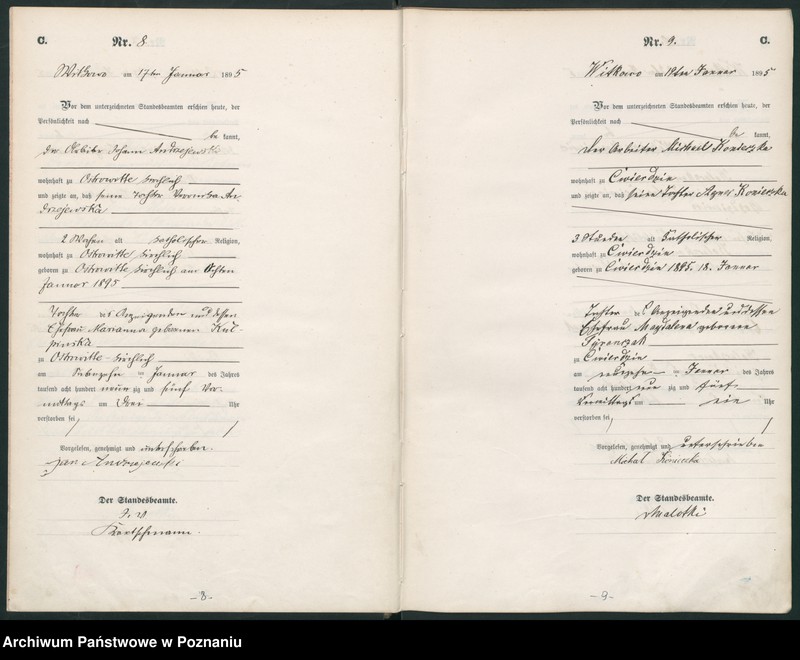 C.
Nr. 8
Witkowo am 17ten Januar 1895
Vor dem unterzeichneten Standesbeamten erschien heute, der
Persönlichkeit nach
be kannt,
der Johann Andrzejewski
wohnhaft zu Ostrowitte kirchlich
und zeigte an, daß seine Tochter Veronika An-
drzejewska
2 Wochen alt katholischer Religion,
wohnhaft zu Ostrowitte kirchlich
geboren zu Ostrowitte kirchlich am
Januar 1895
Tochter des Anzeigenden und dessen
Ehefrau Marianna geborenen
zu Ostrowitte-kirchlich
am siebzehn ten Januar des Jahres
tausend acht hundert neun zig und fünf Vor-
mittags um drei Uhr
verstorben sei
Vorgelesen, genehmigt und unterschrieben.
Jan Andrzejewski
Der Standesbeamte.
J. V.
- 8 -
Nr. 9.
C.
Witkowo am 19ten Januar 1895
Vor dem unterzeichneten Standesbeamten erschien heute, der
Persönlichkeit nach
be kannt,
der Arbeiter Michael Konieczka
wohnhaft zu Cwierdzin
und zeigte an, daß seine Tochter Agnes Konieczka
3 Stunden alt katholischer Religion,
wohnhaft zu Cwierdzin
geboren zu Cwierdzin 1895. 18. Januar
Tochter des Anzeigenden und dessen
Ehefrau Magdalena geborenen
zu Cwierdzin
am ten Januar des Jahres
tausend acht hundert neun zig und fünf
Vormittags um ein Uhr
verstorben sei
Vorgelesen, genehmigt und unterschrieben
Michal Koniecka
Der Standesbeamte.
Malotki
- 9 -
Archiwum Państwowe w Poznaniu